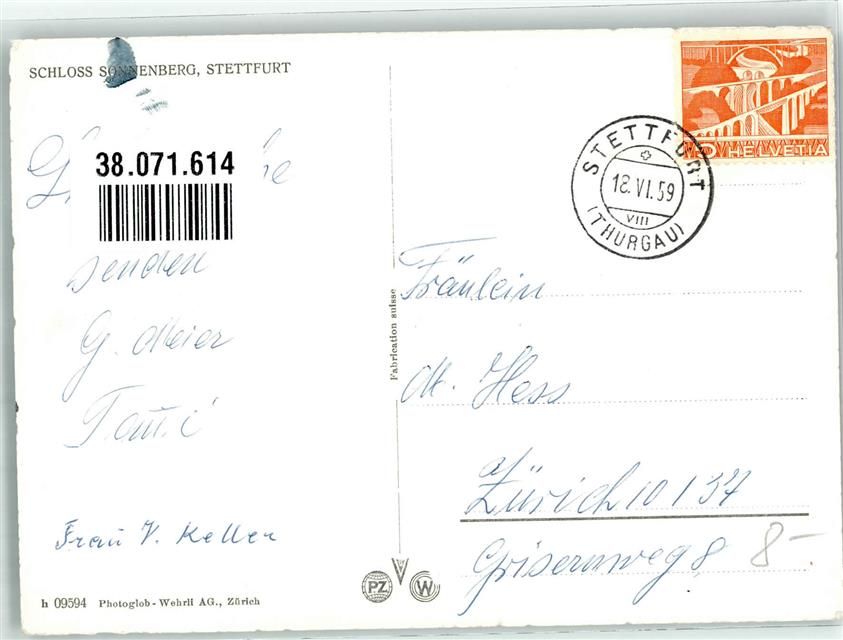 SCHLOSS SONNENBERG, STETTFURT
38.071.614
senden
G. Meier
Frau V. Keller
h 09594 Photoglob-Wehrli AG., Zürich
Fabrication suisse
PZ
W
5 HELVETIA
STETTFURT
18.VI.59
VIII
(THURGAU)
Fräulein
M. Hess
Zürich 10 / 37
8
8-